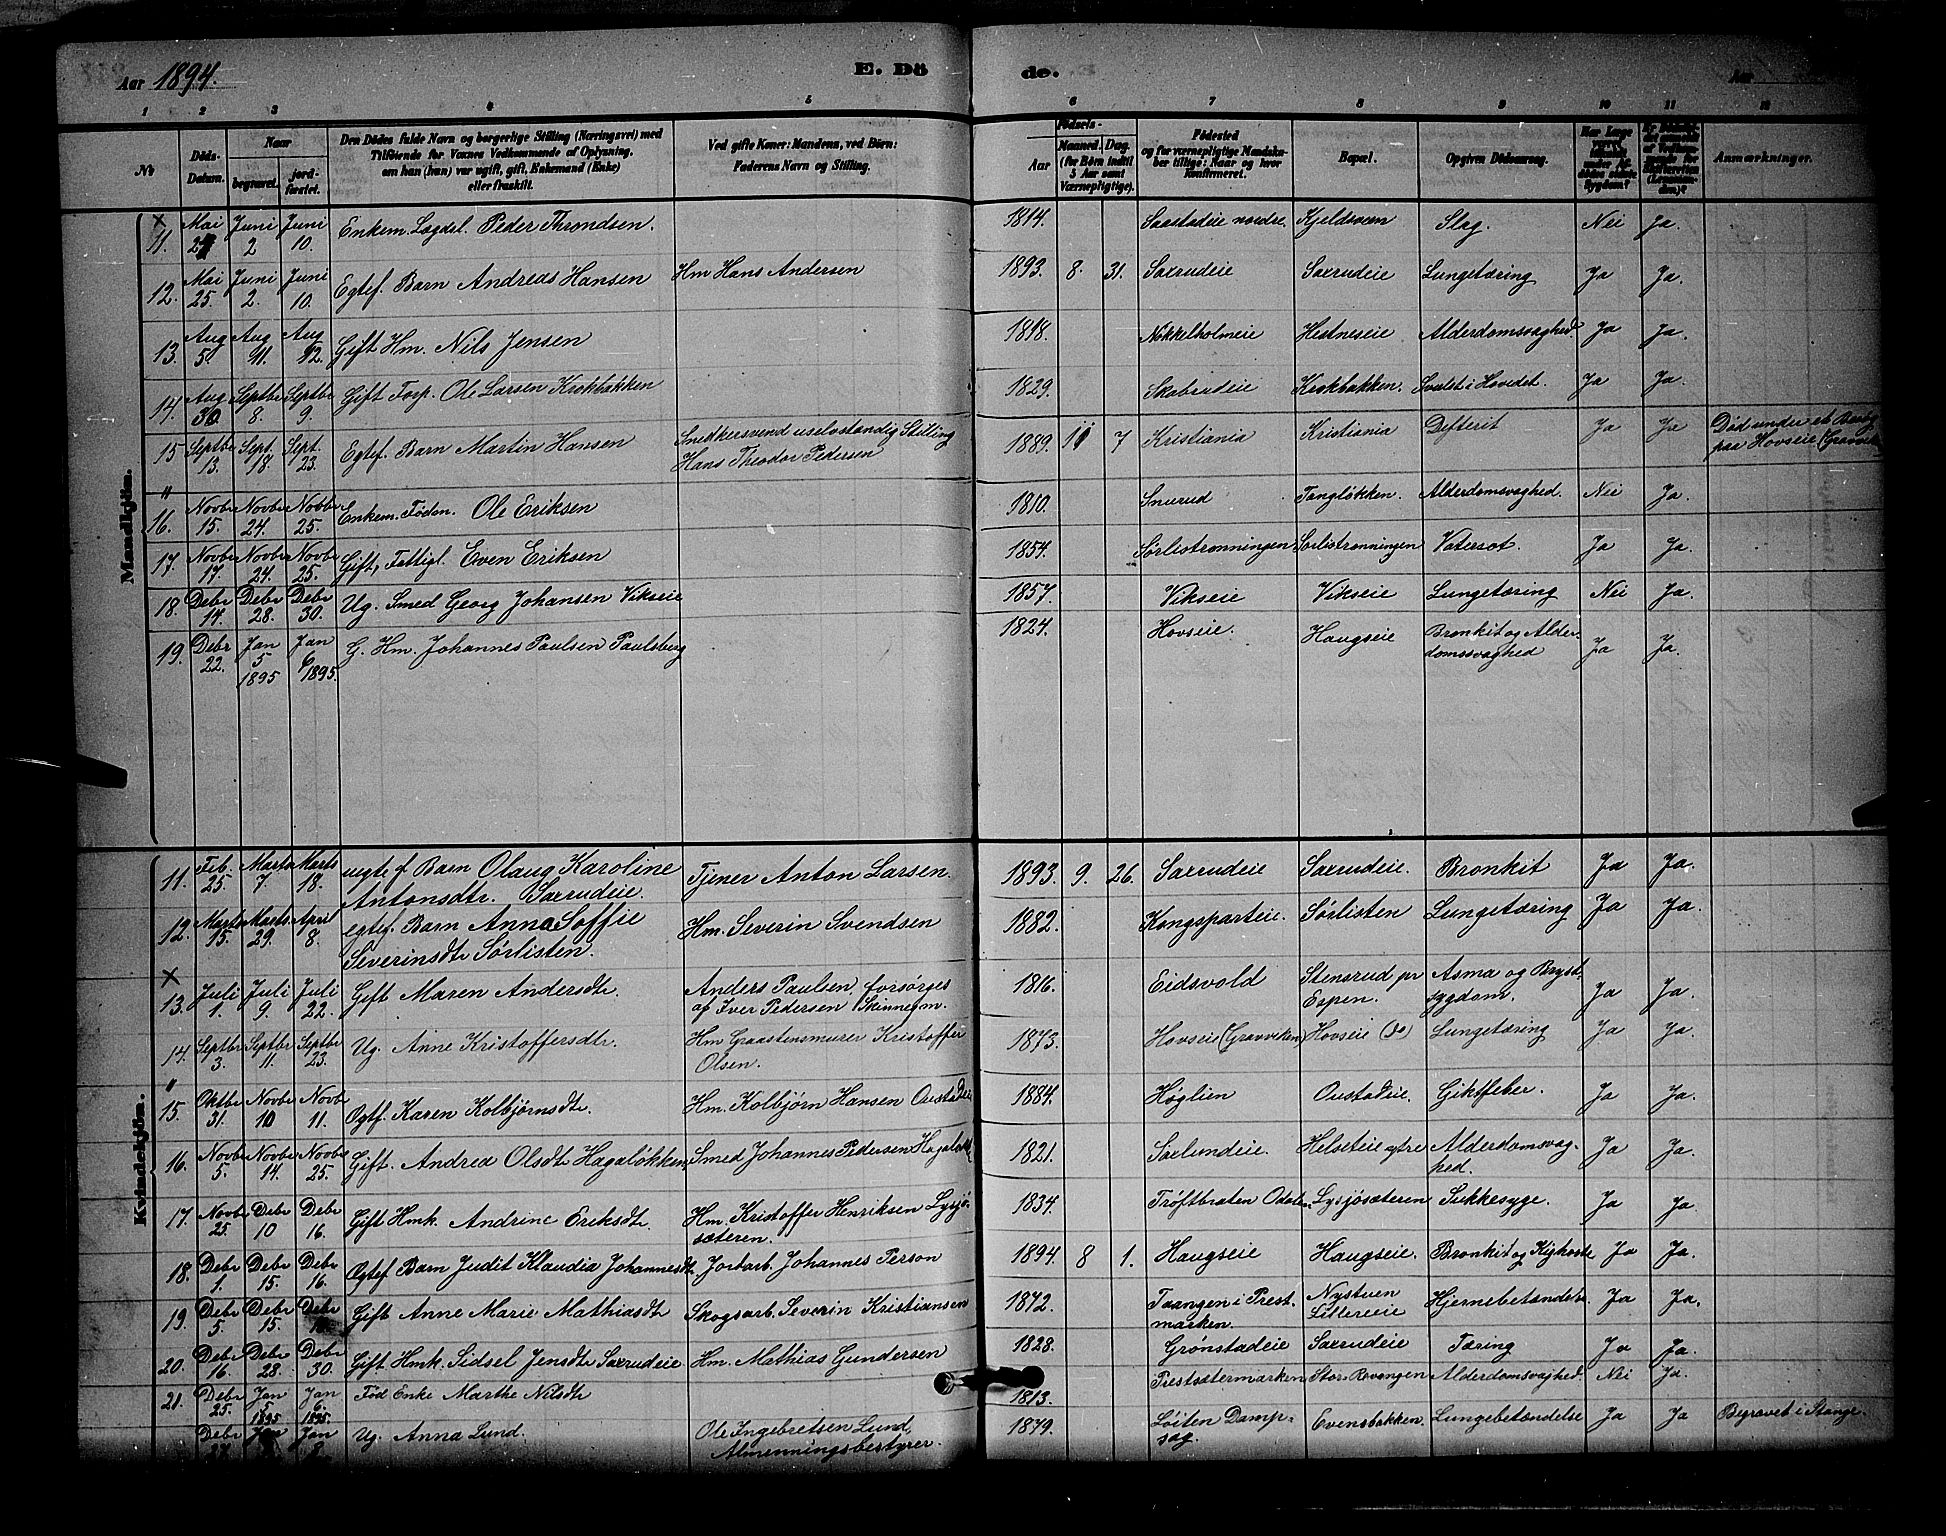 Aar 1894.
E. Dö de.
Aar
1 2 3 4 5 6 7 8 9 10 11 12
No
Döds-Datum.
Naar begravet. jordfæstet.
Den Dödes fulde Navn og borgerlige Stilling (Næringsvei) med
Tilföiende for Voxnes Vedkommende af Oplysning,
om han (hun) var ugift, gift, Enkemand (Enke)
eller fraskilt.
Ved gifte Koner: Mandens, ved Börn:
Faderens Navn og Stilling.
Födsels-
Aar
Maaned. Dag.
(for Börn indtil
5 Aar samt
Værnepligtige).
Födested
og for værnepligtige Mandskaber tillige: Naar og hvor
konfirmeret.
Bopæl.
Opgiven Dödsaarsag.
Har Læge været
Anmærkninger.
Mandkjön.
11. Mai 27 Juni 2 Juni 10. Enkem. Lægdsl. Peder Throndsen. 1814. Saastadeie nordre. Kjeldsveen Slag. Nei Ja.
12. Mai 25. Juni 2. Juni 10. Egtef. Barn Andreas Hansen Hm Hans Andersen 1893. 8. 31. Saxrudeie Saxrudeie Lungetæring Ja Ja.
13. Aug 5. Aug 11. Aug 12. Gift Hm. Nils Jensen 1818. Nokkelholmeie Hestneseie Alderdomsvaghed. Ja Ja.
14. Aug 30. Septbr 8. Septbr 9. Gift Forp. Ole Larsen Krokbakken 1829. Skabrudeie Krokbakken. Svulst i Hovedet. Ja Ja.
15 Septbr 13. Sept. 18. Sept. 23. Egtef. Barn Martin Hansen Snedkersvend uselvstændig Stilling
Hans Theodor Pedersen 1889. 11 7 Kristiania Kristiania Defterit Ja Ja Död under et Besög
paa Hovseie (Gravviken
16. Novbr 15. Novbr 24. Novbr 25. Enkem. Föder. Ole Eriksen 1810. Snurud Tangløkken. Alderdomsvaghed. Nei Ja.
17. Novbr 17. Novbr 24. Novbr 25. Gift, Fattigl. Even Eriksen 1854. Sørlistrønningen Sørlistrønningen Vatersot. Ja Ja.
18. Debr 14. Debr 28. Debr 30. Ug. Smed Georg Johansen Vikseie 1857. Vikseie Vikseie Lungetæring Nei Ja.
19. Debr 22. Jan 5 1895 Jan 6 1895. G. Hm. Johannes Paulsen Paulsberg 1824. Hovseie. Haugseie Bronkit og Alder-
domssvaghed Ja Ja.
Kvindekjön.
11. Feb. 25. Marts 7. Marts 18. uegte f. Barn Olaug Karoline
Antonsdtr. Saxrudeie. Tjener Anton Larsen. 1893. 9. 26. Saxrudeie Saxrudeie. Bronkit Ja Ja.
12. Marts 15. Marts 29. April 8. egtef. Barn Anna Soffie
Severinsdtr Sørlisten. Hm. Severin Svendsen 1882. Kongsparteie. Sørlisten Lungetæring Ja Ja.
13. Juli 1. Juli 9. Juli 22. Gift Maren Andersdtr. Anders Paulsen forsörges
af Iver Pedersen Skinnegm. 1816. Eidsvold Stensrud pr
Espen. Asma og Bryst-
sygdom. Ja Ja.
14. Septbr 3. Septbr 11. Septbr 23. Ug. Anne Kristoffersdtr. Hm Graastensmurer Kristoffer
Olsen. 1873. Hovseie (Gravviken) Hovseie (do) Lungetæring Ja Ja.
15. Oktbr 31. Novbr 10 Novb 11. Egtf. Karen Kolbjørnsdtr. Hm. Kolbjørn Hansen Oustadeie 1884. Høglien Oustadeie. Giktfeber. Ja Ja.
16. Novbr 5. Novbr 14. Novbr 25. Gift. Andrea Olsdtr Hagaløkken Smed Johannes Pedersen Hagaløkk 1821. Saxlundeie. Helseteie østre Alderdomsvag-
hed. Ja Ja.
17. Novbr 25. Debr 10 Debr 16. Gift Hmk. Andrine Eriksdtr. Hm. Kristoffer Henriksen Lysjø-
sæteren. 1834. Trøftbraten Odalen. Lysjøsæteren Sukkesyge. Ja Ja.
18. Debr 1. Debr 15. Debr 16. Egtef Barn Judit Klaudia Johannesdtr. Jordarb. Johannes Person 1894 8 1. Haugseie Haugseie. Bronkit og Kighoste Ja Ja.
19. Debr 5. Debr 15. Debr Gift Anne Marie Mathiasdtr Skogsarb. Severin Kristiansen 1872. Taangen i Prest-
marken. Nystuen
Lillereie Hjernebetændelse Ja Ja.
20. Debr 16. Debr 28. Debr 30. Gift Hmk. Sidsel Jensdtr Saxrudeie Hm. Mathias Gundersen 1828. Grønstadeie Saxrudeie Tæring Ja Ja.
21. Debr 25. Jan 5 1895 Jan 6. 1895. Föd Enke Marthe Nilsdtr 1813. Prestsætermarken Stor-Rovangen Alderdomsvaghed. Nei Ja.
Debr 27. Jan Jan 8. Ug. Anna Lund. Ole Ingebretsen Lund,
Almenningsbestyrer. 1879. Løiten Damp-
sag. Evensbakken. Lungebetændelse Ja Ja Begravet i Stange.